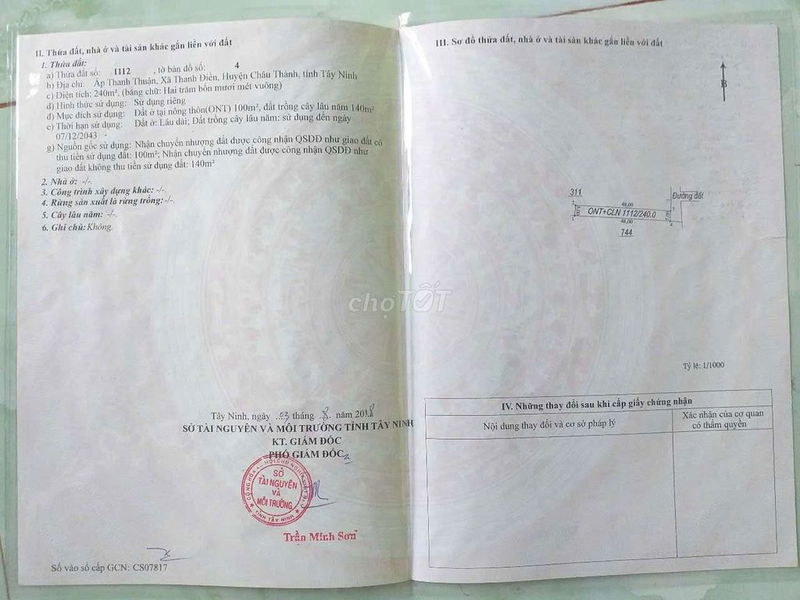 II. Thửa đất, nhà ở và tài sản khác gắn liền với đất
1. Thửa đất:
a) Thửa đất số: 1112, tờ bản đồ số: 4
b) Địa chỉ: Ấp Thanh Thuận, Xã Thanh Điền, Huyện Châu Thành, tỉnh Tây Ninh
c) Diện tích: 240m², (bằng chữ: Hai trăm bốn mươi mét vuông)
d) Hình thức sử dụng: Sử dụng riêng
đ) Mục đích sử dụng: Đất ở tại nông thôn(ONT) 100m², đất trồng cây lâu năm 140m²
e) Thời hạn sử dụng: Đất ở: Lâu dài; Đất trồng cây lâu năm: sử dụng đến ngày
07/12/2043
g) Nguồn gốc sử dụng: Nhận chuyển nhượng đất được công nhận QSDĐ như giao đất có
thu tiền sử dụng đất: 100m²; Nhận chuyển nhượng đất được công nhận QSDĐ như
giao đất không thu tiền sử dụng đất: 140m²
2. Nhà ở: -/-
3. Công trình xây dựng khác: -/-
4. Rừng sản xuất là rừng trồng: -/-
5. Cây lâu năm: -/-
6. Ghi chú: Không.
Tây Ninh, ngày 03 tháng 8 năm 2018
SỞ TÀI NGUYÊN VÀ MÔI TRƯỜNG TỈNH TÂY NINH
KT. GIÁM ĐỐC
PHÓ GIÁM ĐỐC
SỞ
TÀI NGUYÊN
VÀ
MÔI TRƯỜNG
TỈNH TÂY NINH
Trần Minh Sơn
Số vào sổ cấp GCN: CS07817
chợTỐT
III. Sơ đồ thửa đất, nhà ở và tài sản khác gắn liền với đất
B
311
48,00
Đường đất
ONT+CLN 1112/240.0
48,00
744
Tỷ lệ: 1/1000
IV. Những thay đổi sau khi cấp giấy chứng nhận
Nội dung thay đổi và cơ sở pháp lý
Xác nhận của cơ quan
có thẩm quyền